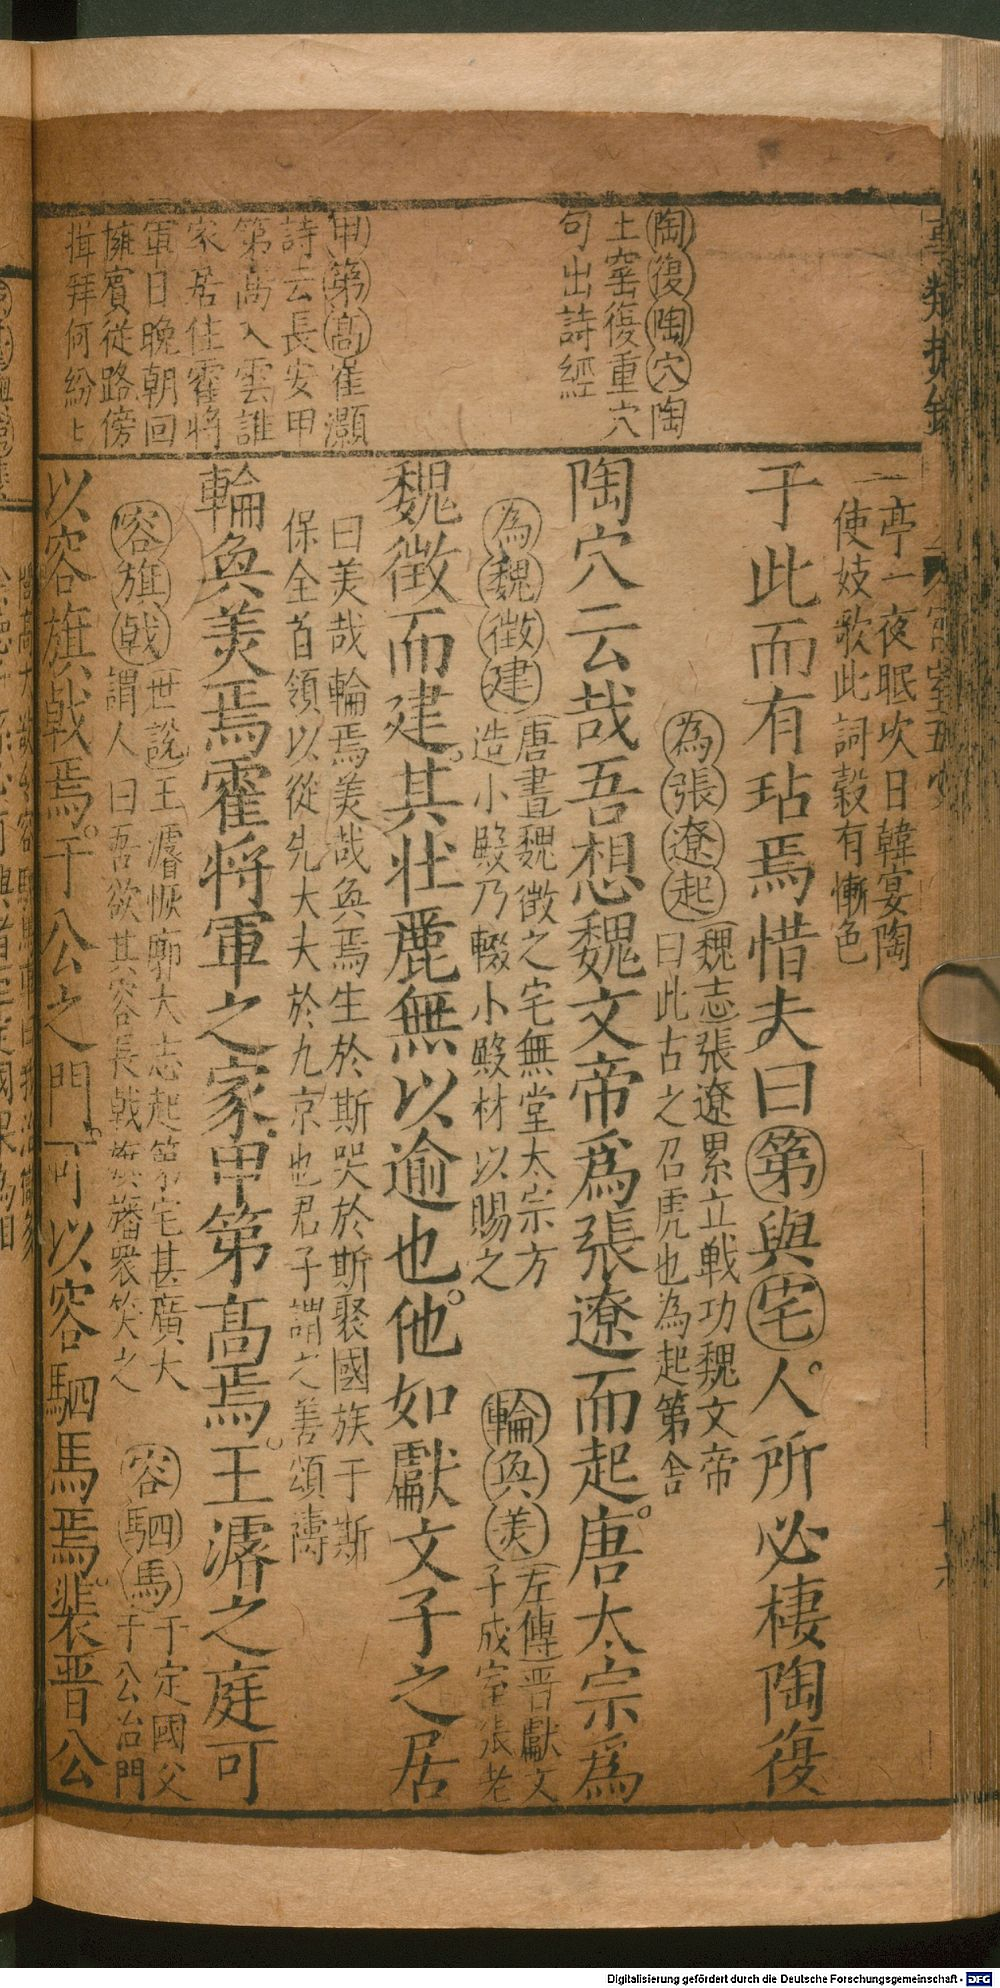 陶復陶穴陶
土窑復重穴
句出詩經
甲第高崔灝
詩云長安甲
第高入雲誰
家居住霍將
軍日晚朝回
擁賓從路傍
揖拜何紛紛
亭一夜眠次日韓宴陶
使妓歌此詞穀有慚色
于此而有玷焉惜夫曰第與宅人所必棲陶復
為張遼起魏志張遼累立戰功魏文帝
曰此古之召虎也為起第舍
陶穴云哉吾想魏文帝爲張遼而起唐太宗爲
為魏徵建唐書魏徵之宅無堂太宗方
造小殿乃輟小殿材以賜之
輪奐美左傳晉獻文
子成室張老
魏徵而建其壯麗無以逾也他如獻文子之居
曰美哉輪焉美哉奐焉生於斯哭於斯聚國族于斯
保全首領以從先大夫於九京也君子謂之善頌善禱
輪奐美焉霍將軍之家甲第高焉王濬之庭可
容旗戟世說王濬恢廓大志起第宅甚廣大
謂人曰吾欲其容長戟旗旛衆笑之
容駟馬于定國父
于公治門
以容旗戟焉于公之門可以容駟馬焉裴晋公
Digitalisierung gefördert durch die Deutsche Forschungsgemeinschaft - DFG